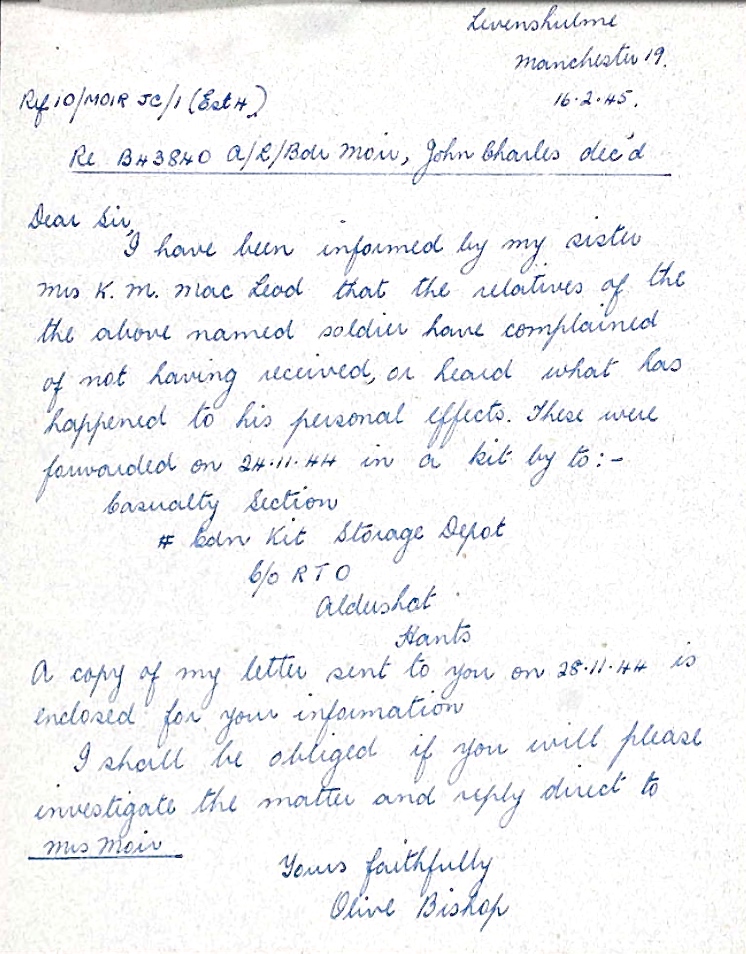 Levenshulme
Manchester 19.
16.2.45.
Ref 10/MOIR JC/1 (Est 4)
Re B43840 A/L/Bdr Moir, John Charles dec'd
Dear Sir,
I have been informed by my sister
Mrs K. M. Mac Leod that the relatives of the
the above named soldier have complained
of not having received, or heard what has
happened to his personal effects. These were
forwarded on 24.11.44 in a kit by to:-
Casualty Section
# Cdn Kit Storage Depot
C/o R T O
Aldershot
Hants
A copy of my letter sent to you on 28.11.44 is
enclosed for your information
I shall be obliged if you will please
investigate the matter and reply direct to
Mrs Moir
Yours faithfully
Olive Bishop